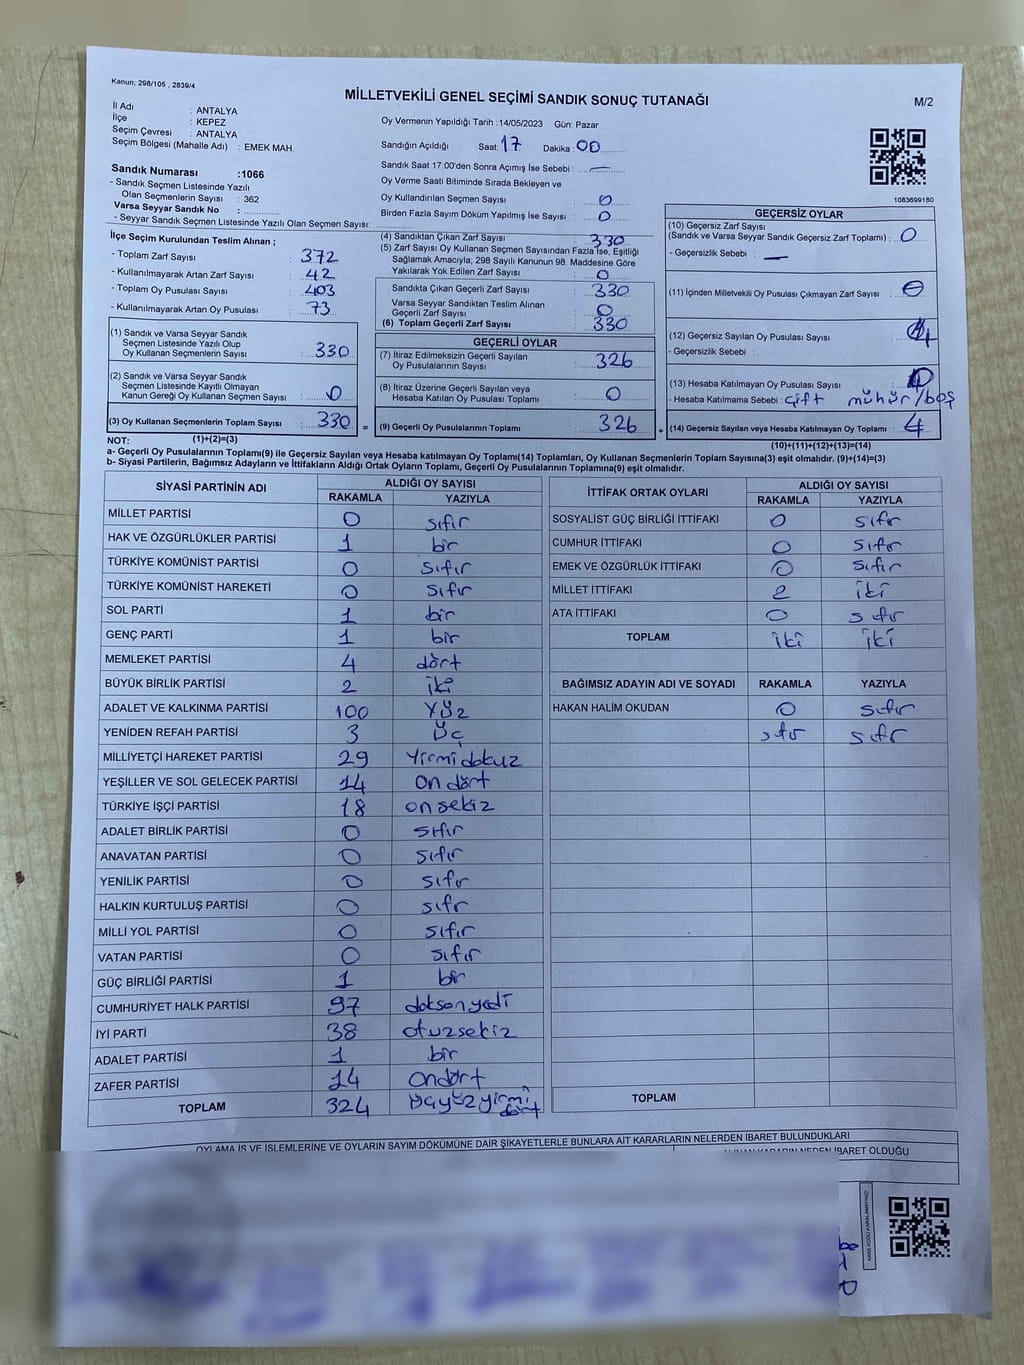 Kanun; 298/105 , 2839/4
MİLLETVEKİLİ GENEL SEÇİMİ SANDIK SONUÇ TUTANAĞI
M/2
İl Adı : ANTALYA
İlçe : KEPEZ
Seçim Çevresi : ANTALYA
Seçim Bölgesi (Mahalle Adı) : EMEK MAH.
Oy Vermenin Yapıldığı Tarih :14/05/2023 Gün: Pazar
Sandığın Açıldığı Saat: 17 Dakika : 00
Sandık Saat 17:00'den Sonra Açımış İse Sebebi : —
Oy Verme Saati Bitiminde Sırada Bekleyen ve
Oy Kullandırılan Seçmen Sayısı : 0
Birden Fazla Sayım Döküm Yapılmış İse Sayısı : 0
1083699180
Sandık Numarası :1066
- Sandık Seçmen Listesinde Yazılı
Olan Seçmenlerin Sayısı : 362
Varsa Seyyar Sandık No :
- Seyyar Sandık Seçmen Listesinde Yazılı Olan Seçmen Sayısı:
İlçe Seçim Kurulundan Teslim Alınan ;
- Toplam Zarf Sayısı : 372
- Kullanılmayarak Artan Zarf Sayısı : 42
- Toplam Oy Pusulası Sayısı : 403
- Kullanılmayarak Artan Oy Pusulası : 73
(1) Sandık ve Varsa Seyyar Sandık
Seçmen Listesinde Yazılı Olup
Oy Kullanan Seçmenlerin Sayısı : 330
(2) Sandık ve Varsa Seyyar Sandık
Seçmen Listesinde Kayıtlı Olmayan
Kanun Gereği Oy Kullanan Seçmen Sayısı : 0
(3) Oy Kullanan Seçmenlerin Toplam Sayısı : 330 =
(1)+(2)=(3)
(4) Sandıktan Çıkan Zarf Sayısı : 330
(5) Zarf Sayısı Oy Kullanan Seçmen Sayısından Fazla İse, Eşitliği
Sağlamak Amacıyla; 298 Sayılı Kanunun 98. Maddesine Göre
Yakılarak Yok Edilen Zarf Sayısı : 0
Sandıkta Çıkan Geçerli Zarf Sayısı : 330
Varsa Seyyar Sandıktan Teslim Alınan
Geçerli Zarf Sayısı : 0
(6) Toplam Geçerli Zarf Sayısı : 330
GEÇERLİ OYLAR
(7) İtiraz Edilmeksizin Geçerli Sayılan
Oy Pusulalarının Sayısı : 326
(8) İtiraz Üzerine Geçerli Sayılan veya
Hesaba Katılan Oy Pusulası Toplamı : 0
(9) Geçerli Oy Pusulalarının Toplamı : 326 +
GEÇERSİZ OYLAR
(10) Geçersiz Zarf Sayısı
(Sandık ve Varsa Seyyar Sandık Geçersiz Zarf Toplamı) : 0
- Geçersizlik Sebebi : —
(11) İçinden Milletvekili Oy Pusulası Çıkmayan Zarf Sayısı : 0
(12) Geçersiz Sayılan Oy Pusulası Sayısı : 4
- Geçersizlik Sebebi :
(13) Hesaba Katılmayan Oy Pusulası Sayısı : 0
- Hesaba Katılmama Sebebi : çift mühür/boş
(14) Geçersiz Sayılan veya Hesaba Katılmayan Oy Toplamı : 4
(10)+(11)+(12)+(13)=(14)
NOT:
a- Geçerli Oy Pusulalarının Toplamı(9) ile Geçersiz Sayılan veya Hesaba katılmayan Oy Toplamı(14) Toplamları, Oy Kullanan Seçmenlerin Toplam Sayısına(3) eşit olmalıdır. (9)+(14)=(3)
b- Siyasi Partilerin, Bağımsız Adayların ve İttifakların Aldığı Ortak Oyların Toplamı, Geçerli Oy Pusulalarının Toplamına(9) eşit olmalıdır.
SİYASİ PARTİNİN ADI ALDIĞI OY SAYISI
RAKAMLA YAZIYLA
MİLLET PARTİSİ 0 sıfır
HAK VE ÖZGÜRLÜKLER PARTİSİ 1 bir
TÜRKİYE KOMÜNİST PARTİSİ 0 sıfır
TÜRKİYE KOMÜNİST HAREKETİ 0 sıfır
SOL PARTİ 1 bir
GENÇ PARTİ 1 bir
MEMLEKET PARTİSİ 4 dört
BÜYÜK BİRLİK PARTİSİ 2 iki
ADALET VE KALKINMA PARTİSİ 100 yüz
YENİDEN REFAH PARTİSİ 3 üç
MİLLİYETÇİ HAREKET PARTİSİ 29 yirmi dokuz
YEŞİLLER VE SOL GELECEK PARTİSİ 14 on dört
TÜRKİYE İŞÇİ PARTİSİ 18 on sekiz
ADALET BİRLİK PARTİSİ 0 sıfır
ANAVATAN PARTİSİ 0 sıfır
YENİLİK PARTİSİ 0 sıfır
HALKIN KURTULUŞ PARTİSİ 0 sıfır
MİLLİ YOL PARTİSİ 0 sıfır
VATAN PARTİSİ 0 sıfır
GÜÇ BİRLİĞİ PARTİSİ 1 bir
CUMHURİYET HALK PARTİSİ 97 doksan yedi
İYİ PARTİ 38 otuzsekiz
ADALET PARTİSİ 1 bir
ZAFER PARTİSİ 14 ondört
TOPLAM 324 üçyüz yirmi dört
İTTİFAK ORTAK OYLARI ALDIĞI OY SAYISI
RAKAMLA YAZIYLA
SOSYALİST GÜÇ BİRLİĞİ İTTİFAKI 0 sıfır
CUMHUR İTTİFAKI 0 sıfır
EMEK VE ÖZGÜRLÜK İTTİFAKI 0 sıfır
MİLLET İTTİFAKI 2 iki
ATA İTTİFAKI 0 sıfır
TOPLAM iki iki
BAĞIMSIZ ADAYIN ADI VE SOYADI RAKAMLA YAZIYLA
HAKAN HALİM OKUDAN 0 sıfır
sıfır sıfır
TOPLAM
OYLAMA İŞ VE İŞLEMLERİNE VE OYLARIN SAYIM DÖKÜMÜNE DAİR ŞİKAYETLERLE BUNLARA AİT KARARLARIN NELERDEN İBARET BULUNDUKLARI
İBARET OLDUĞU